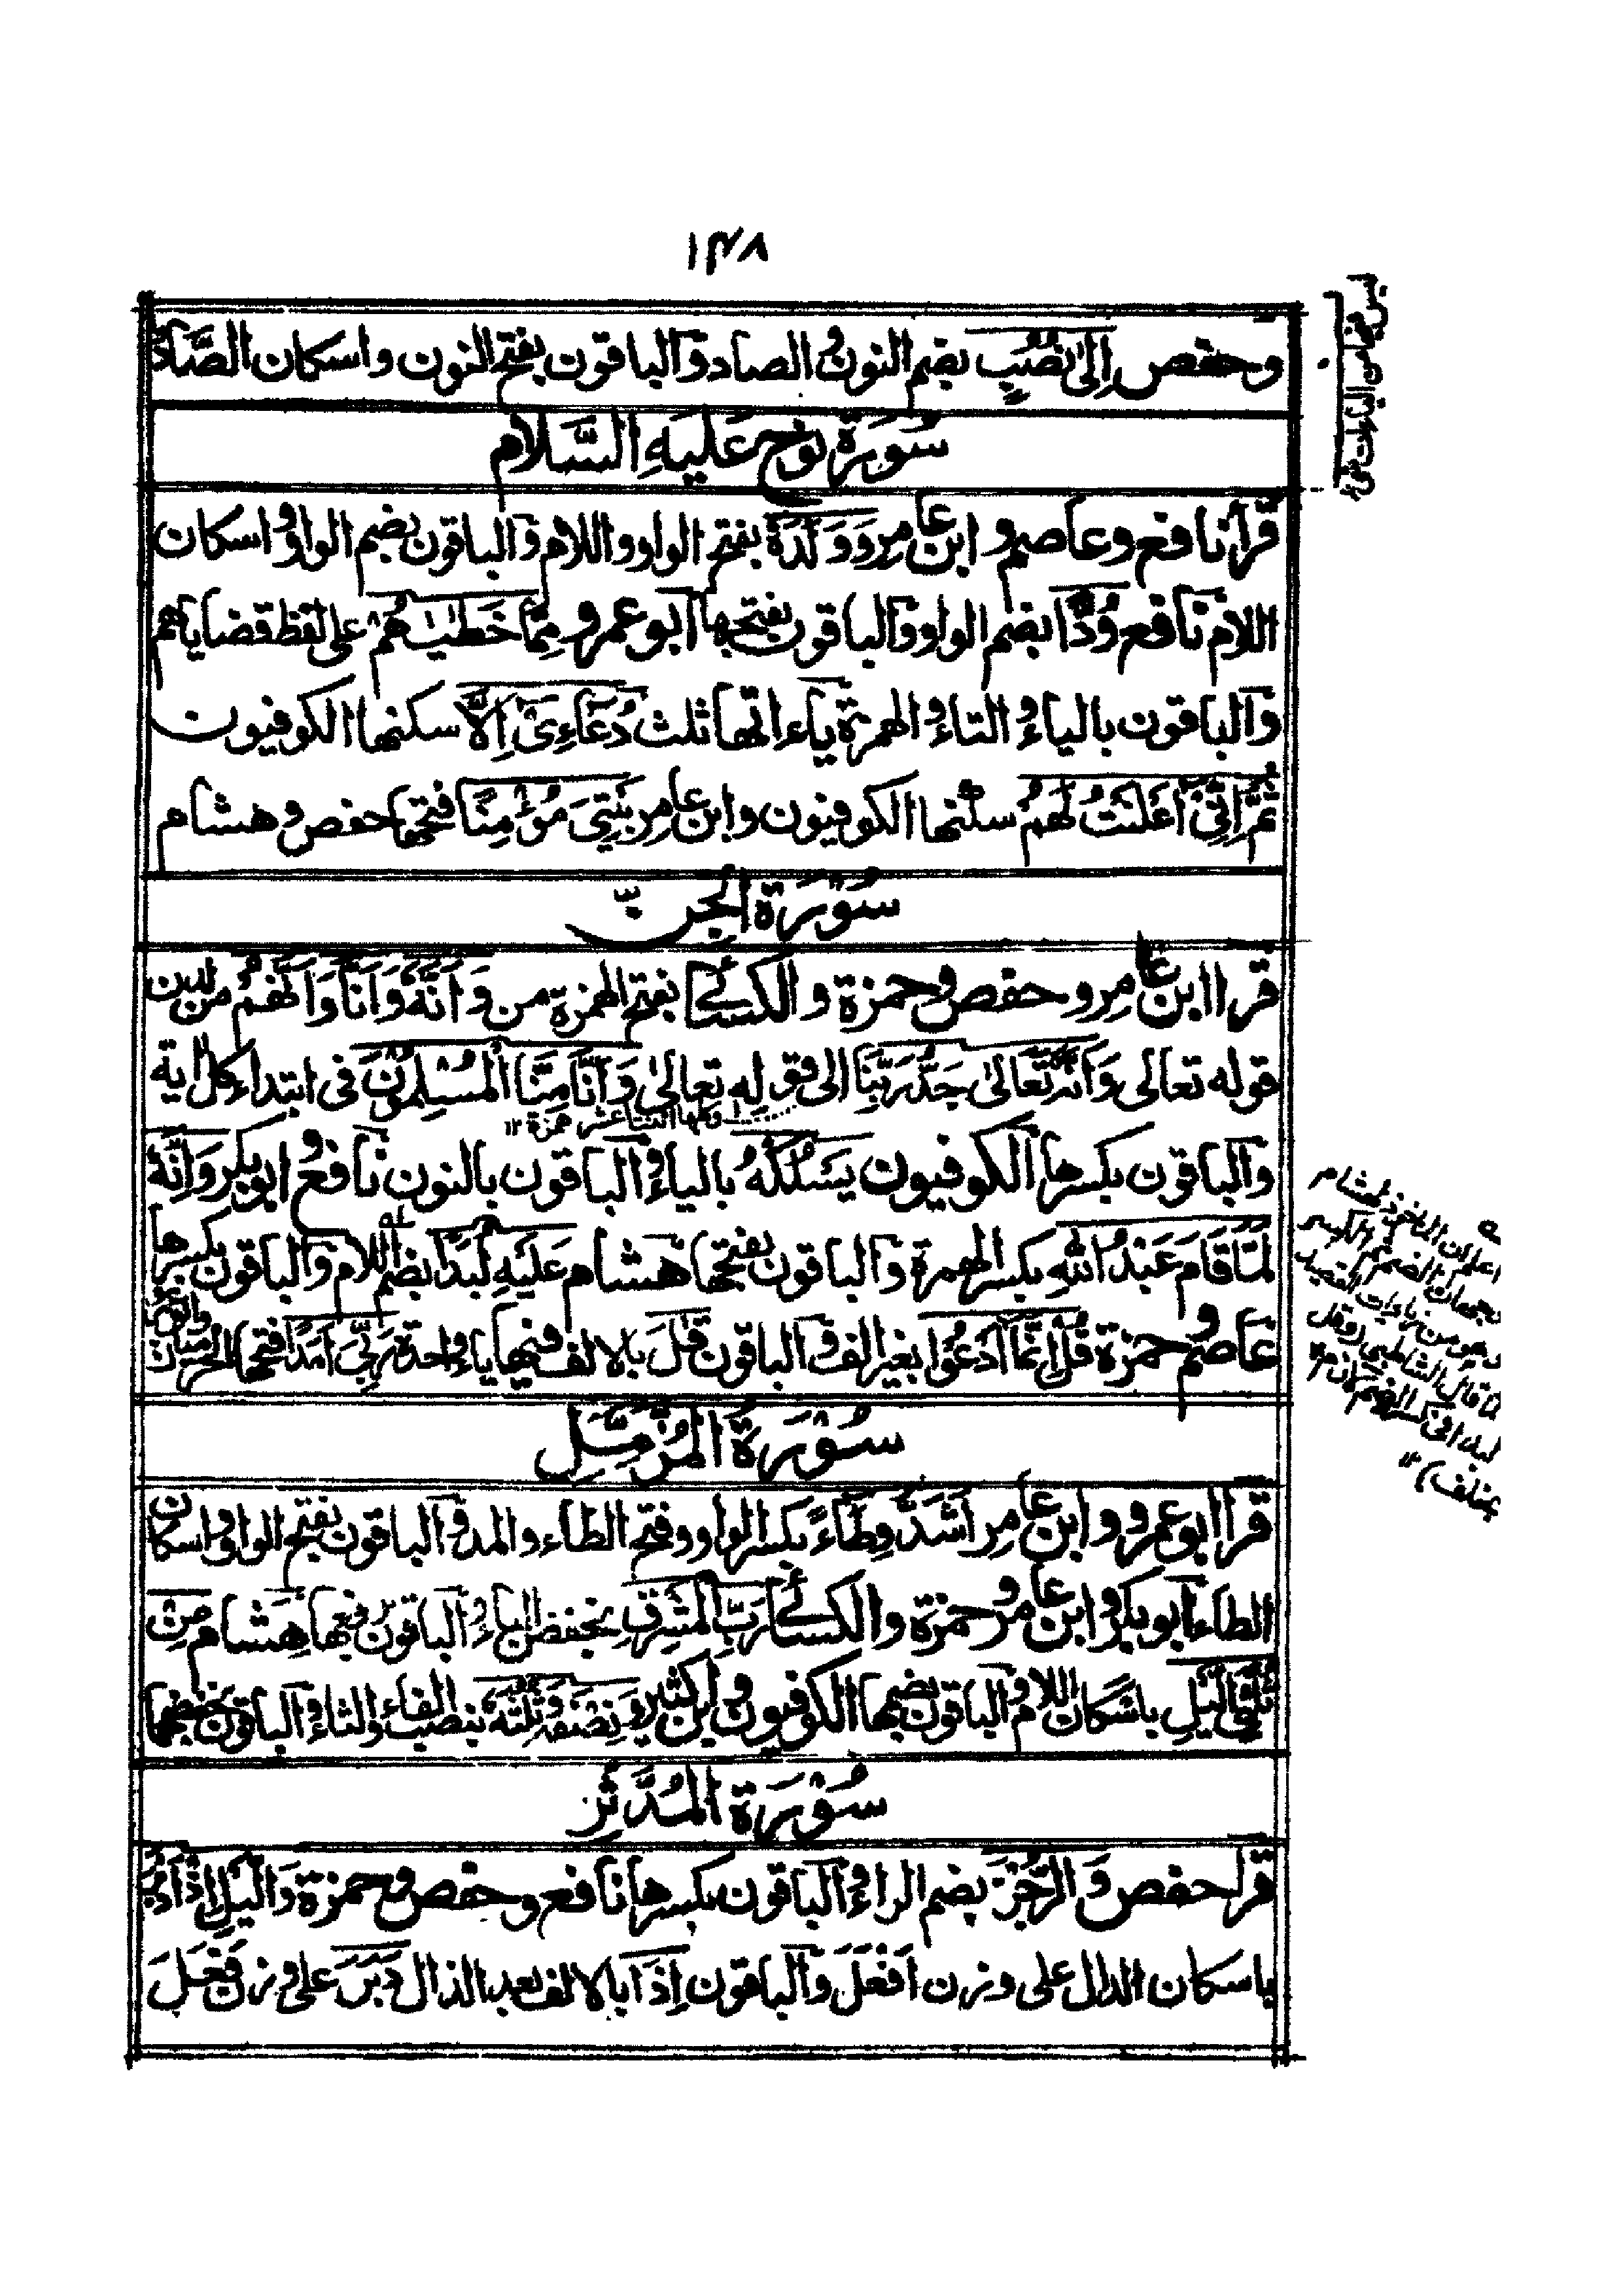 ١٣٨
وحفص إِلٰى نُصُبٍ بضم النون و الصاد و الباقون بفتح النون واسكان الصَّاد
سُوْرَةُ نوْح عَلَيْهِ السَّلَام
قَرأ نافع وعاصم و ابن عامر وَوَلَدُهٗ بفتح الواو واللام و الباقون بضم الواو و اسكان
اللام نافع وُدًّا بضم الواو و الباقون بفتحها ابو عمرو مِمَّا خَطٰيٰهُمْ على لفظ قضاياهم
و الباقون بالياء و التاء و الهمزة ياءاتها ثلث دُعَاءِيْ اِلَّا سكنها الكوفيون
ثُمَّ اِنِّيْ اَعْلَنْتُ لَهُمْ سكنها الكوفيون وابن عامر بَيْتِيَ مُؤْمِنًا فتحها حفص و هشام
سُوْرَةُ الْجِنِّ
قرأ ابن عامر و حفص و حمزة و الكسائي بفتح الهمزة من وَاَنَّهٗ وَاَنَّا وَاَنَّهُمْ من لدن
قوله تعالى وَاَنَّهٗ تَعَالٰى جَدُّ رَبِّنَا الى قوله تعالىٰ وَاَنَّا مِنَّا الْمُسْلِمُوْنَ فى ابتداء كل اية
وهما اثنتا عشر همزة ١٢
و الباقون بكسرها الكوفيون يَسْلُكْهُ بالياء و الباقون بالنون نافع و ابو بكر وَاِنَّهٗ
لَمَّا قَامَ عَبْدُ اللهِ بكسر الهمزة و الباقون بفتحها هشام عَلَيْهِ لُبَدًا بضم اللام و الباقون بكسرها
عاصم و حمزة قُلْ اِنَّمَا اَدْعُوْا بغير الف و الباقون قٰلَ بالالف فيها ياء واحدة رَبِّيَ اَمَدًا فتحها الحرميان
وابو عمرو
سُوْرَةُ الْمُزَّمِّلِ
قرأ ابو عمرو و ابن عامر اَشَدُّ وِطَاءً بكسر الواو و فتح الطاء و المد و الباقون بفتح الواو و اسكان
الطاء ابو بكر و ابن عامر و حمزة و الكسائي رَبِّ الْمَشْرِقِ بخفض الباء و الباقون برفعها هشام مِنْ
ثُلْثَيِ الَّيْلِ باسكان اللام و الباقون بضمها الكوفيون و ابن كثير وَنِصْفَهٗ وَثُلُثَهٗ بنصب الفاء والثاء و الباقون بخفضهما
سُوْرَةُ الْمُدَّثِّرِ
قرأ حفص وَ الرُّجْزَ بضم الراء و الباقون بكسرها نافع و حفص و حمزة وَالَّيْلِ اِذْ اَدْبَرَ
باسكان الذال على وزن اَفْعَلَ و الباقون اِذَا بالالف بعد الذال دَبَرَ على وزن فَعَلَ